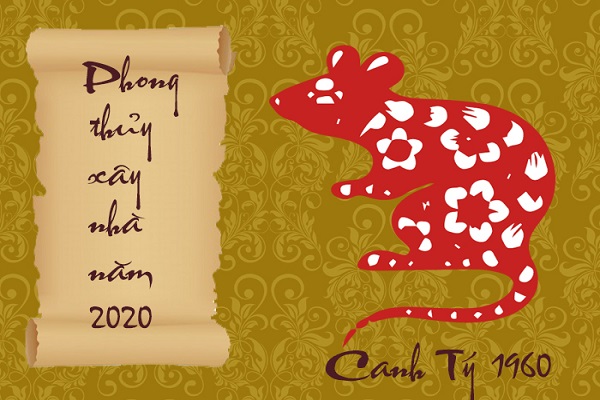 Phong
thủy
xây
nhà
năm
2020
Canh Tý 1960